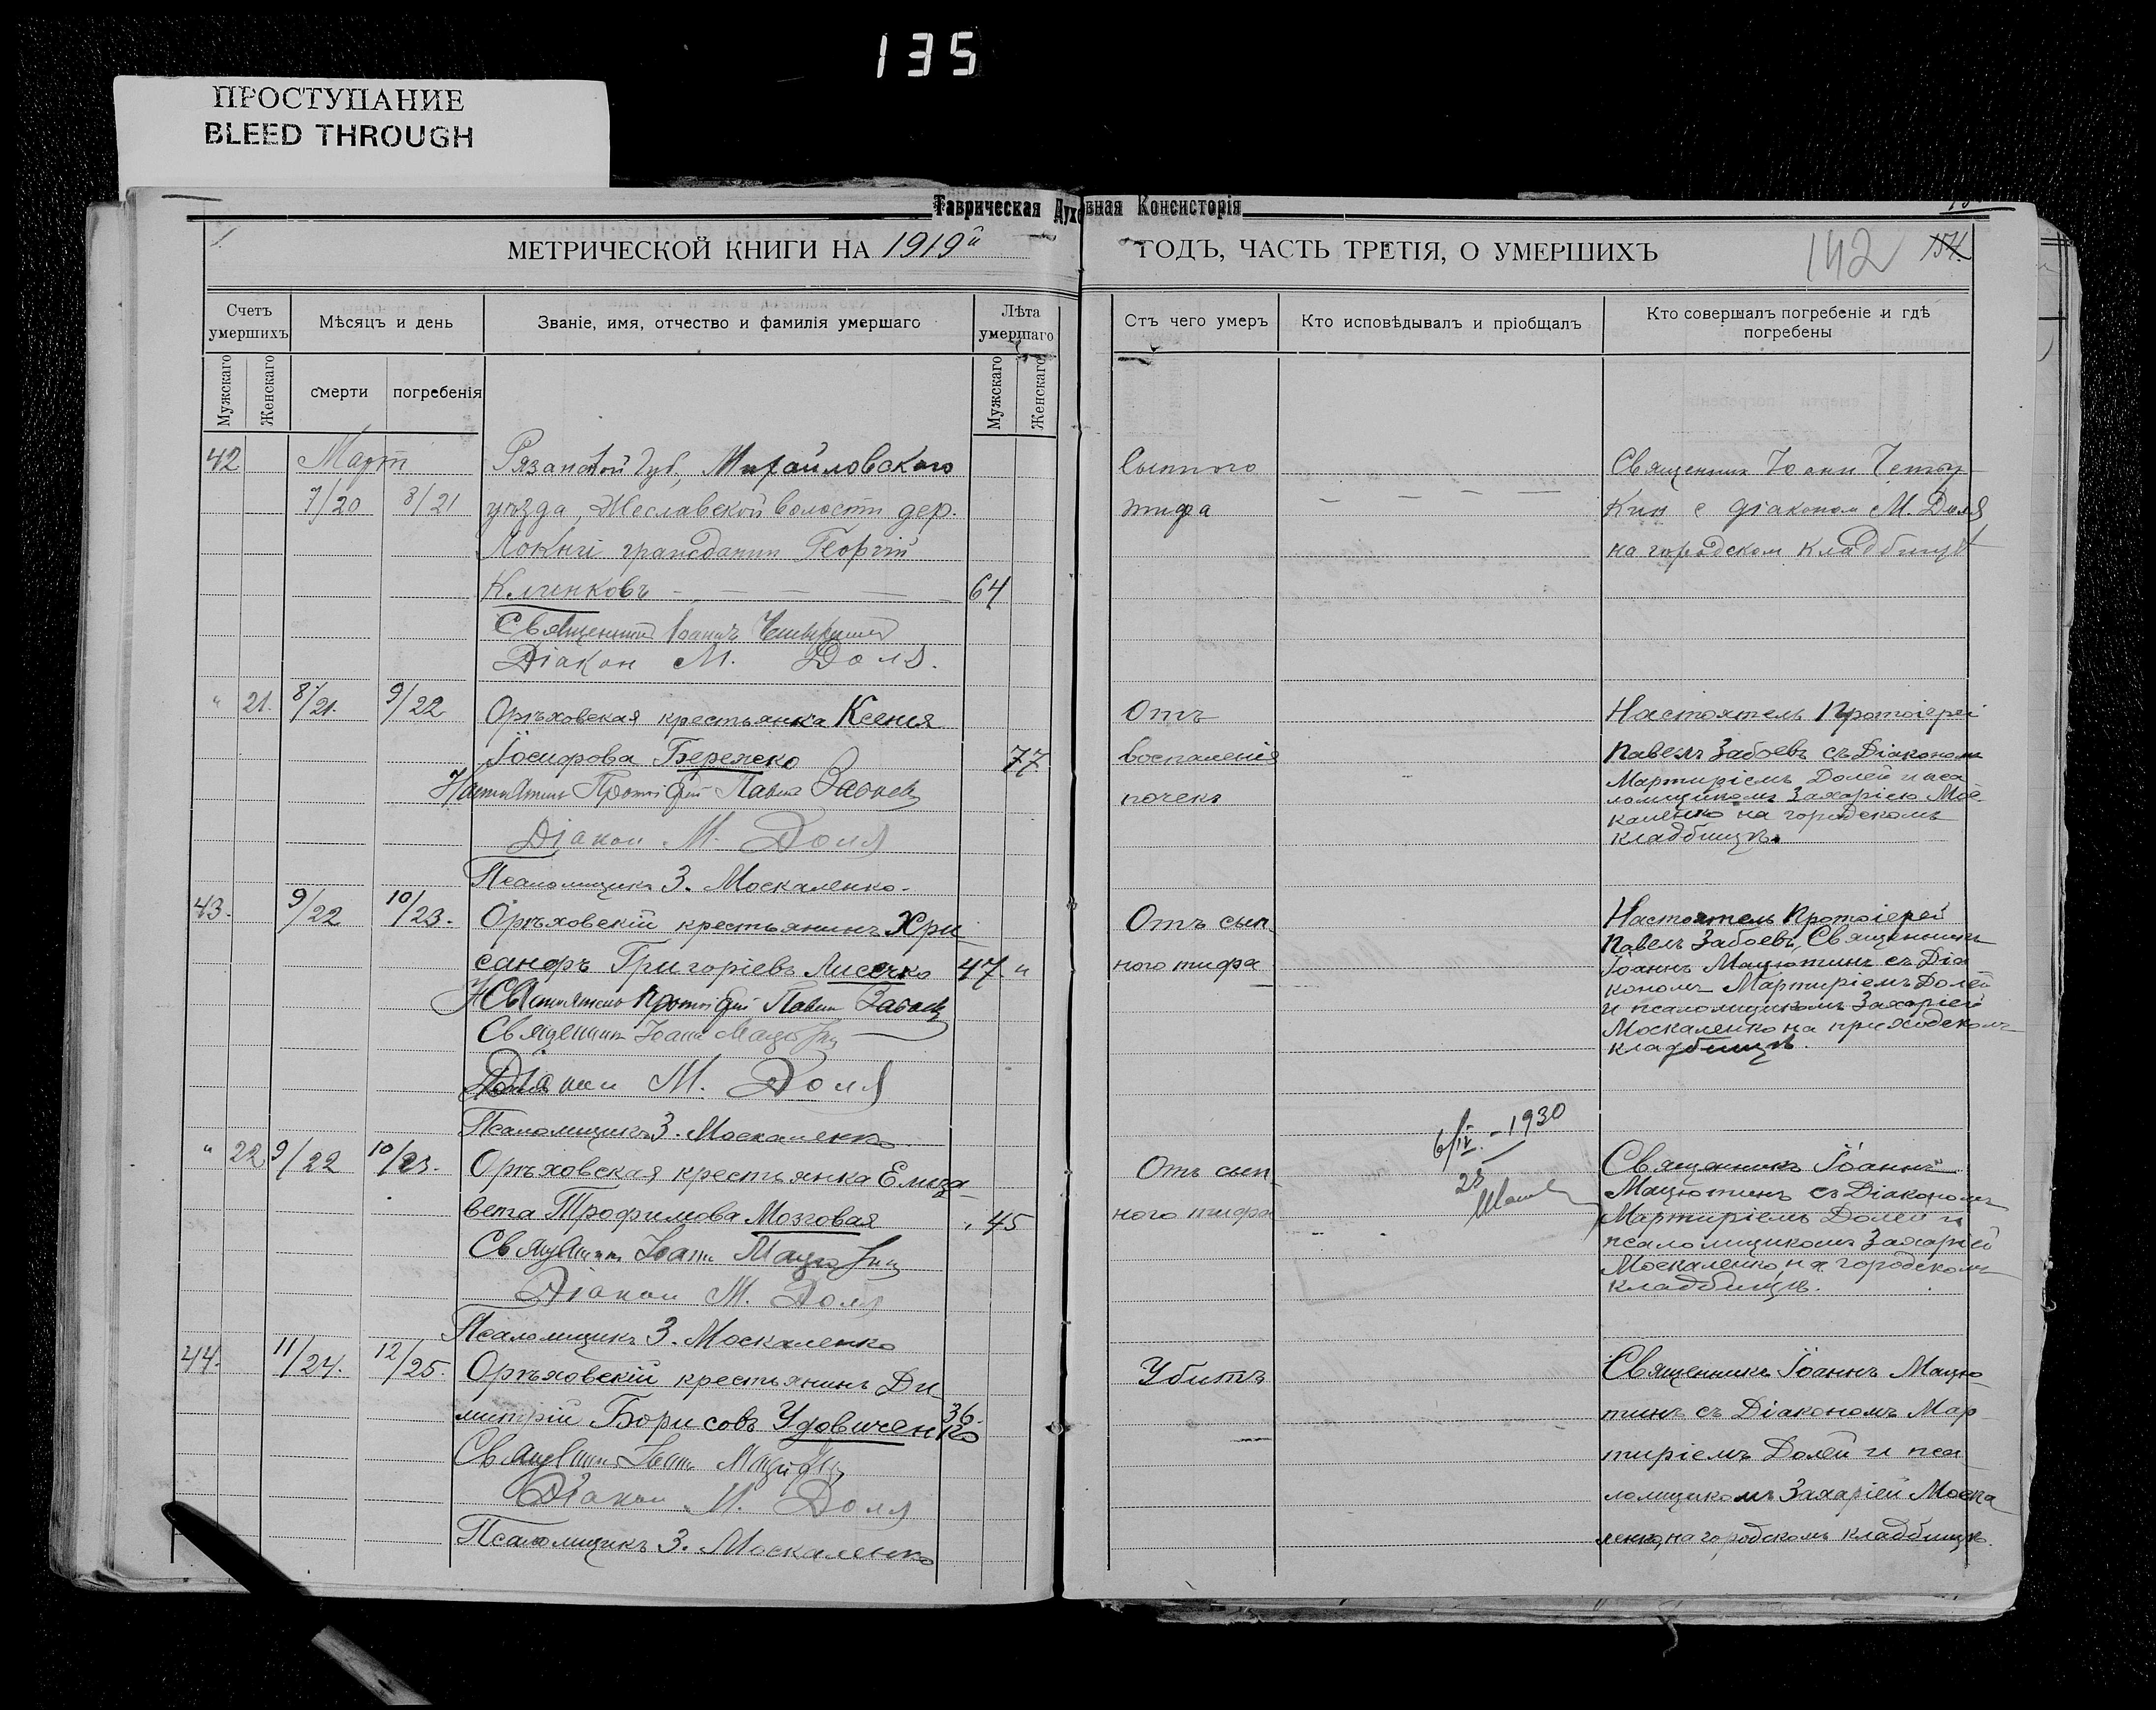 135
ПРОСТУПАНИЕ
BLEED THROUGH
Таврическая Духовная Консисторія
МЕТРИЧЕСКОЙ КНИГИ НА 1919й
ГОДЪ, ЧАСТЬ ТРЕТІЯ, О УМЕРШИХЪ
142
Счетъ умершихъ
Мѣсяцъ и день
Званіе, имя, отчество и фамилія умершаго
Лѣта умершаго
Мужскаго
Женскаго
смерти
погребенія
Мужскаго
Женскаго
Стъ чего умеръ
Кто исповѣдывалъ и пріобщалъ
Кто совершалъ погребеніе и гдѣ
погребены
42 Март Рязанской губ, Михайловскаго
7/20 8/21 уѣзда, волости дер.
гражданин Георгій
64
Священникъ Іоаннъ
Діакон М. Доля.
Сыпного
тифа
Священник Іоанн
кин с діаконом М. Доля
на городском кладбищѣ
" 21. 8/21. 9/22 Орѣховская крестьянка Ксенія
Іосифова Бережко 77.
Настоятель Протоіерей Павел Забоев
Діакон М. Доля
Псаломщикъ З. Москаленко.
Отъ
воспаленія
почекъ
Настоятель Протоіерей
Павелъ Забоевъ съ Діакономъ
Мартиріемъ Долей и пса
ломщикомъ Захаріею Мос
каленко на городскомъ
кладбищѣ.
43. 9/22 10/23. Орѣховскій крестьянинъ Хри
санфъ Григоріевъ Лисечко 47. "
Настоятель Протоіерей Павел Забоев
Священник Іоанн Мацютин
Діакон М. Доля
Псаломщикъ З. Москаленко
Отъ сып
ного тифа
Настоятель Протоіерей
Павелъ Забоевъ, Священникъ
Іоаннъ Мацютинъ съ Діа
кономъ Мартиріемъ Долей
и псаломщикомъ Захаріей
Москаленко на приходскомъ
кладбищѣ.
" 22 9/22 10/23. Орѣховская крестьянка Елиза
вета Трофимова Мозговая " 45
Священник Іоанн Мацютин
Діакон М. Доля
Псаломщикъ З. Москаленко
Отъ сып
ного тифа
6/IV. - 1930
23
Священникъ Іоаннъ
Мацютинъ съ Діакономъ
Мартиріемъ Долей и
псаломщикомъ Захаріей
Москаленко, на городскомъ
кладбищѣ.
44. 11/24. 12/25. Орѣховскій крестьянинъ Ди
митрій Борисовъ Удовиченко 36.
Священник Іоанн Мацютин
Діакон М. Доля
Псаломщикъ З. Москаленко
Убитъ
Священникъ Іоаннъ Мацю
тинъ съ Діакономъ Мар
тиріемъ Долей и пса
ломщикомъ Захаріей Моска
ленко, на городскомъ кладбищѣ.